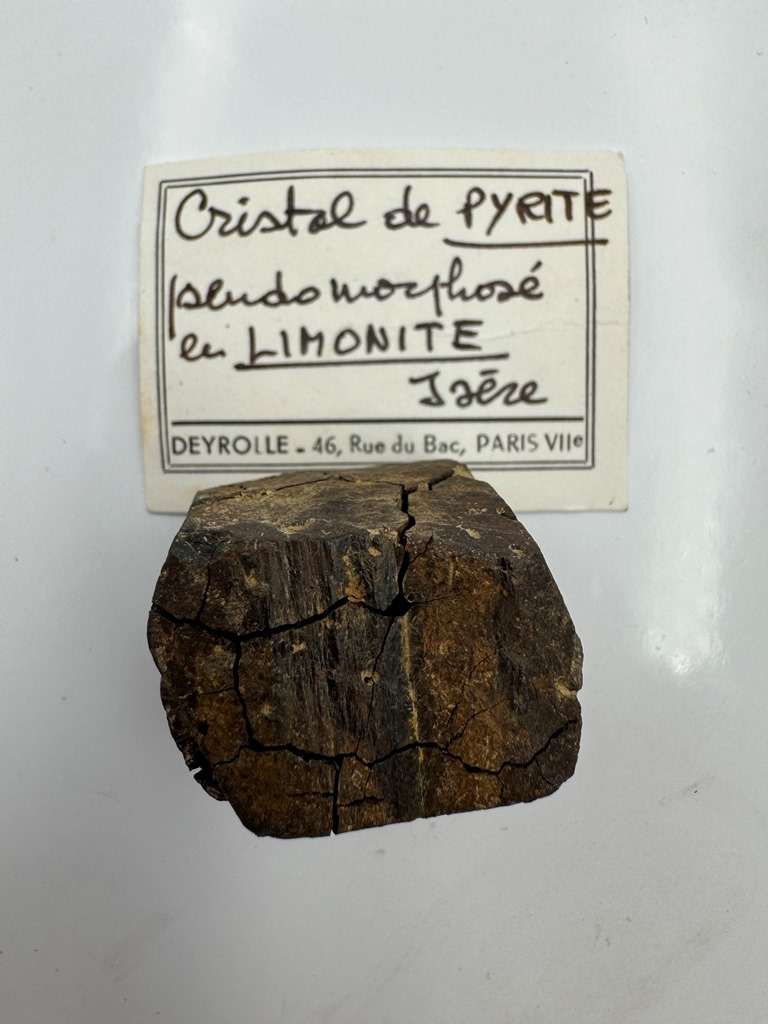 Cristal de PYRITE
pseudomorphosé
en LIMONITE
Isère
DEYROLLE - 46, Rue du Bac, PARIS VIIe